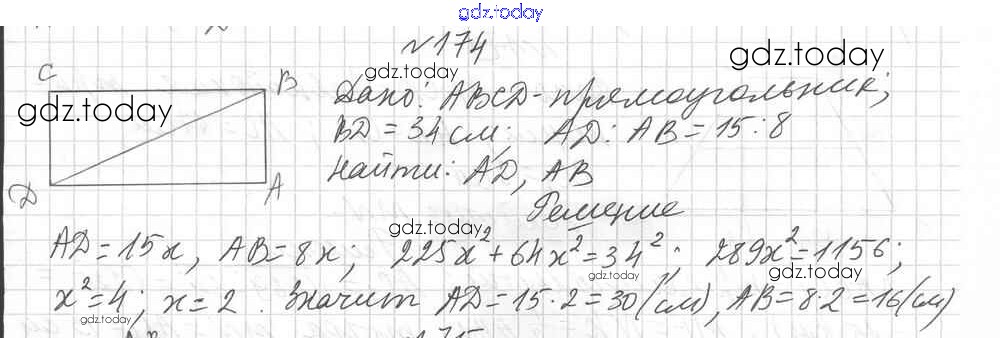 gdz.today
№174
gdz.today
gdz.today
C B
gdz.today
D A
Дано: ABCD - прямоугольник;
BD = 34 см; AD : AB = 15 : 8
Найти: AD, AB
Решение
gdz.today
AD = 15x, AB = 8x; 225x² + 64x² = 34²; 289x² = 1156;
gdz.today
gdz.today
x² = 4; x = 2. Значит AD = 15 · 2 = 30 (см), AB = 8 · 2 = 16 (см)
gdz.today